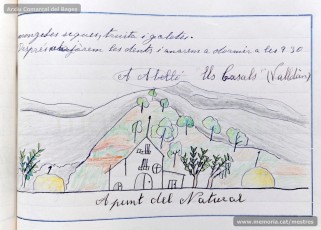 Arxiu Comarcal del Bages
mongetes seques, truita i galetes.
Després férem les dents i anàrem a dormir a les 9'30
A Abella "Els Casals" (Valldàn)
Apunt del Natural
www.memoria.cat/mestres